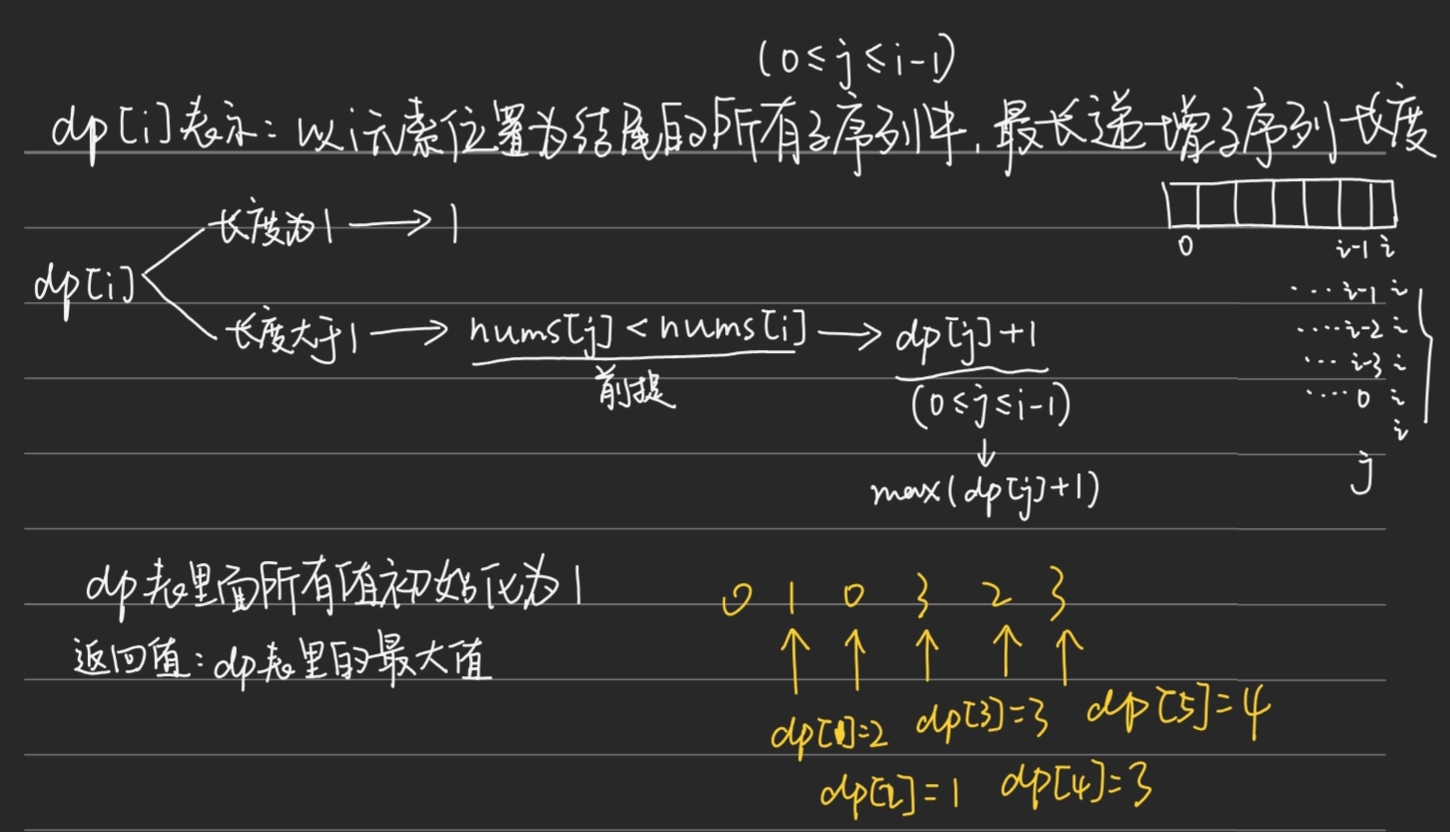 (0≤j≤i-1)
dp[i]表示：以i元素位置为结尾的所有子序列中，最长递增子序列长度
长度为1 → 1
0 i-1 i
dp[i]
····i-1 i
长度大于1 → nums[j] < nums[i] → dp[j]+1
····i-2 i
···i-3 i
前提
(0≤j≤i-1)
····0 i
i
↓
j
max(dp[j]+1)
dp表里面所有值初始化为1
0 1 0 3 2 3
返回值：dp表里的最大值
↑ ↑ ↑ ↑ ↑
dp[1]=2 dp[3]=3 dp[5]=4
dp[2]=1 dp[4]=3